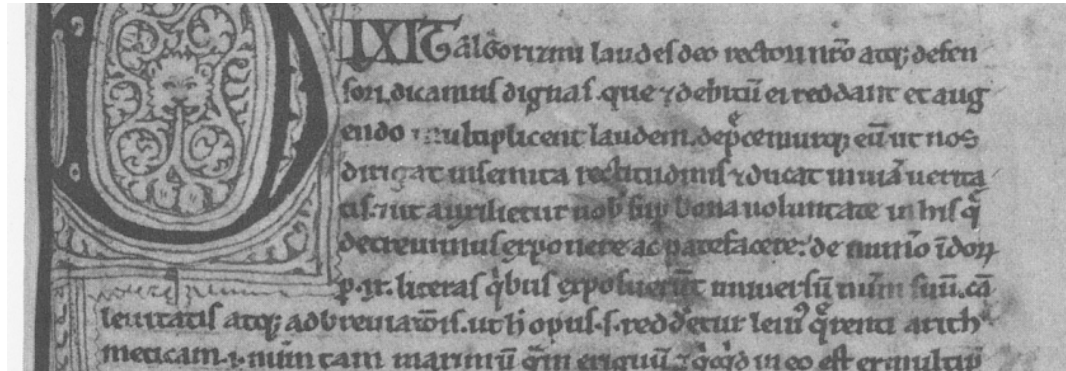 DIXIT algorizmi laudes deo rectori nr̃o atq; defen
sori. dicamus dignas. que ⁊ debitũ ei reddant et aug
endo multiplicent laudem. dep̃cemurq; eũ ut nos
dirigat in semita rectitudinis ⁊ ducat in uiã uerita
tis. ⁊ ut auxilietur nob̃ sup̱ bona uoluntate in his q̃
decreuimus exponere ac patefacere: de num̃o ĩdoꝝ
p. ix. literas q̃bus exposuerũt uniuersũ num̃ suũ. cã
leuitatis atq; adbreuiatõis. ut h̃ opus. s. redderetur leui⁹ q̃renti arith
meticam. i. num̃ tam maximũ q̃m exiguũ. ⁊ q̃cq̃d in eo est ex multip